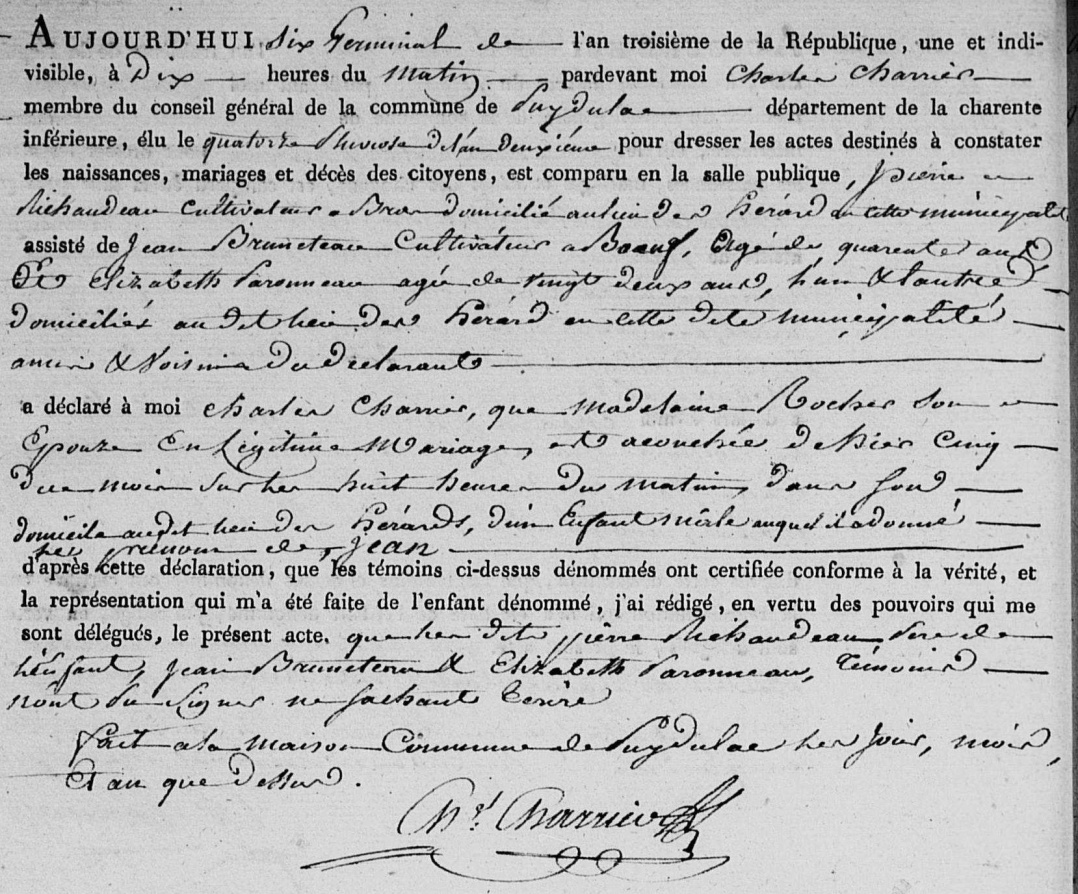 AUJOURD'HUI six Germinal de l'an troisième de la République, une et indi-
visible, à Dix heures du matin pardevant moi Charles Charrier
membre du conseil général de la commune de Puydulac département de la charente
inférieure, élu le quatorze Pluviose de l'an deuxième pour dresser les actes destinés à constater
les naissances, mariages et décès des citoyens, est comparu en la salle publique, pierre
Richaudeau Cultivateur a Bras domicilié au lieu des hérard en cette municipalité
assisté de Jean Bruneteau Cultivateur a Boeuf, Agé de quarente ans
Et Elizabeth Paronneau agée de vingt deux ans, l'un & lautre
domiciliés au dit lieu des hérard en cette dite municipalité
amis & Voisins du declarant
a déclaré à moi Charles Charrier, que Madelaine Rocher son
Epouze En Légitime Mariage, est acouchée d'hier Cinq
du moir sur les huit heures du matin, dans son
domicile audit lieu des hérards, d'un Enfant mâle auquel il a donné
le prenom de Jean
d'après cette déclaration, que les témoins ci-dessus dénommés ont certifiée conforme à la vérité, et
la représentation qui m'a été faite de l'enfant dénominé, j'ai rédigé, en vertu des pouvoirs qui me
sont délégués, le présent acte. que les dits pierre Richaudeau Pere de
l'Enfant, Jean Bruneteau & Elizabeth Paronneau, Témoins
n'ont su Signer ne sachant Ecrire
fait a la maison Commune de Puydulac les Jour, mois,
Et an que Dessus.
Chs. Charrier